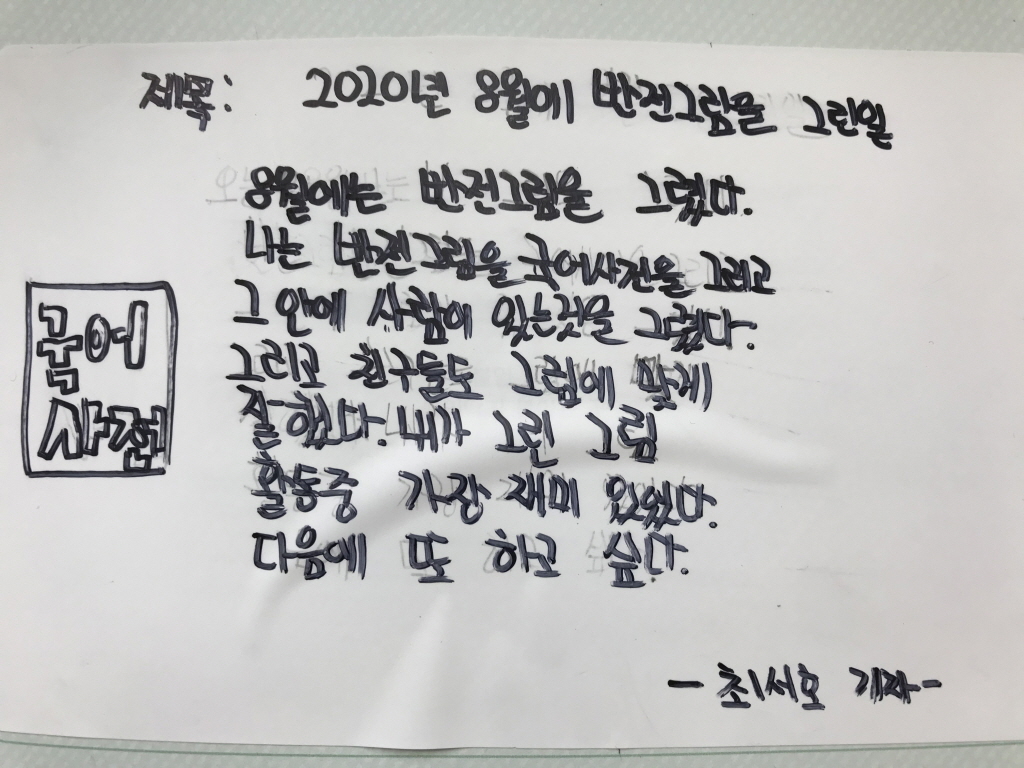 제목: 2020년 8월에 반전그림을 그린일
8월에는 반전그림을 그렸다.
나는 반전그림을 국어사전을 그리고
그 안에 사람이 있는것을 그렸다.
그리고 친구들도 그림에 맞게
잘했다. 내가 그린 그림
활동중 가장 재미 있었다.
다음에 또 하고 싶다.
국어
사전
- 최서호 기자-